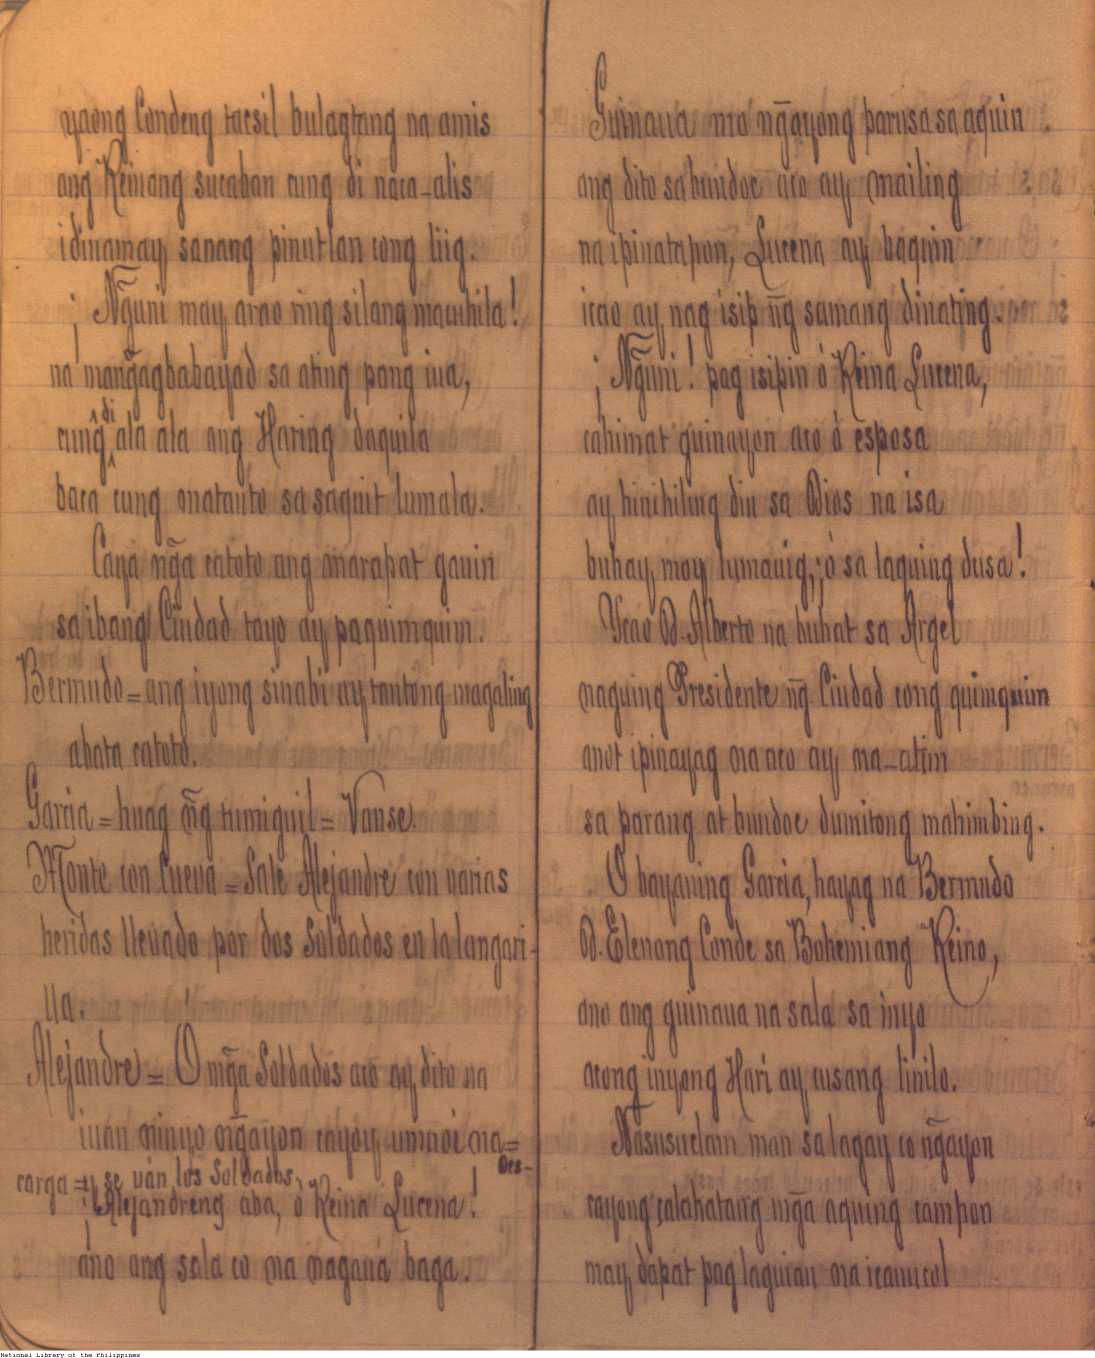 yaong Condeng tacsil bulagtang na amis
ang Reinang sucaban cung di naca-alis
idinamay sanang pinutlan cong liig.
¡Ñguni may arao ring silang macuhila!
na mangagbabayad sa ating pang iua,
cung di ala ala ang Haring daquila
baca cung matanto sa saguit lumala.
Caya ng̃a catoto ang marapat gauin
sa ibang Ciudad tayo ay paquimquim.
Bermudo = ang iyong sinabi ay tantong magaling
abata catoto.
Garcia = huag ng̃g tumiguil = Vanse.
Monte con Cueva = Sale Alejandre con varias
heridas llevado por dos Soldados en la langari-
lla.
Alejandre = O mg̃a Soldados aco ay dito na
iuan ninyo ng̃ayon cayoy umuoi na= Des-
carga = y se ván los Soldados,
¡Alejandreng aba, ó Reina Lucena!
ano ang sala co na nagaua baga.
Guinaua mo ng̃ayong parusa sa aquin
ang dito sa bundoc aco ay mailing
na ipinatapon, Lucena ay baquin
icao ay nag isip ng̃ samang dinating.
¡Ñguni! pag isipin ó Reina Lucena,
cahimat guinayon aco ó esposa
ay hinihiling din sa Dios na isa
buhay, moy lumauig, ó sa laguing dusa!
Ycao D. Alberto na buhat sa Argel
naguing Presidente ng̃ Ciudad cong quimquim
anot ipinayag na aco ay ma-atim
sa parang at bundoc dumitong mahimbing.
O bayaning Garcia, hayag na Bermudo
D. Elenong Conde sa Bohemiang Reino,
ano ang guinaua na sala sa inyo
acong inyong Hari ay cusang linilo.
Nasusuclam man sa lagay co ng̃ayon
cayong calahatang mg̃a aquing campon
may dapat pag laguian na icauucol